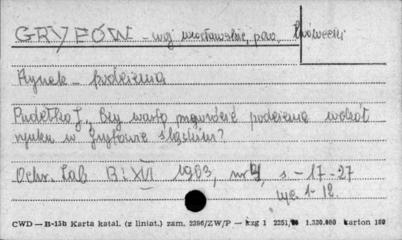 GRYFÓW - woj wrocławskie, pow. lwówecki
Rynek - podcienia
Pudełko J., Czy warto przywrócić podcienia wokół
rynku w Gryfowie Śląskim?
Ochr. Zab R: XVI 1963, nr 4, s - 17-27
ryc. 1-12.
CWD — B-15b Karta katal. (z liniat.) zam. 2386/ZW/P — kzg 1 2251, 1.320.000 karton 180